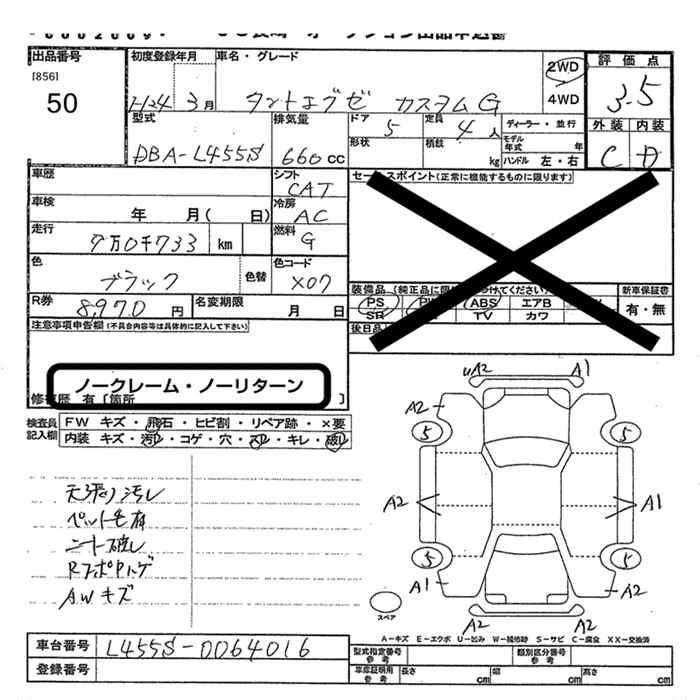 出品番号 初度登録年月 車名・グレード 2WD 評価点
[856]
50 H24 3月 タントエグゼ カスタムG 4WD 3.5
型式 排気量 ドア 定員 ディーラー・並行 外装 内装
DBA-L455S 660CC 5 4人 C D
形状 積載 kg モデル年式 年
ハンドル 左・右
車歴 シフト CAT セールスポイント(正常に機能するものに限ります)
車検 年 月( 日) 冷房 AC
走行 7万0千733 km 燃料 G
色 ブラック 色替 色コード X07
装備品
新車保証書
R券 8,970 円 名変期限 月 日 PS ABS エアB 有・無
SR TV カワ
注意事項申告欄(不具合内容等は具体的に記入して下さい) 後日品
ノークレーム・ノーリターン
修復歴 有[箇所 ]
検査員記入欄 FW キズ・飛石・ヒビ割・リペア跡・×要
内装 キズ・汚れ・コゲ・穴・スレ・キレ・破レ
天張り汚レ
ペット毛有
シート破レ
AWキズ
uA2 A1
A2
5 5
A2 A1
5 5
A1 A2
スペア
A2 A2
A-キズ E-エクボ U-凹み W-補修跡 S-サビ C-腐食 XX-交換済
車台番号 L455S-0064016 型式指定番号 参考 類別区分番号 参考
登録番号 車庫証明用 参考 長さ cm 幅 cm 高さ cm